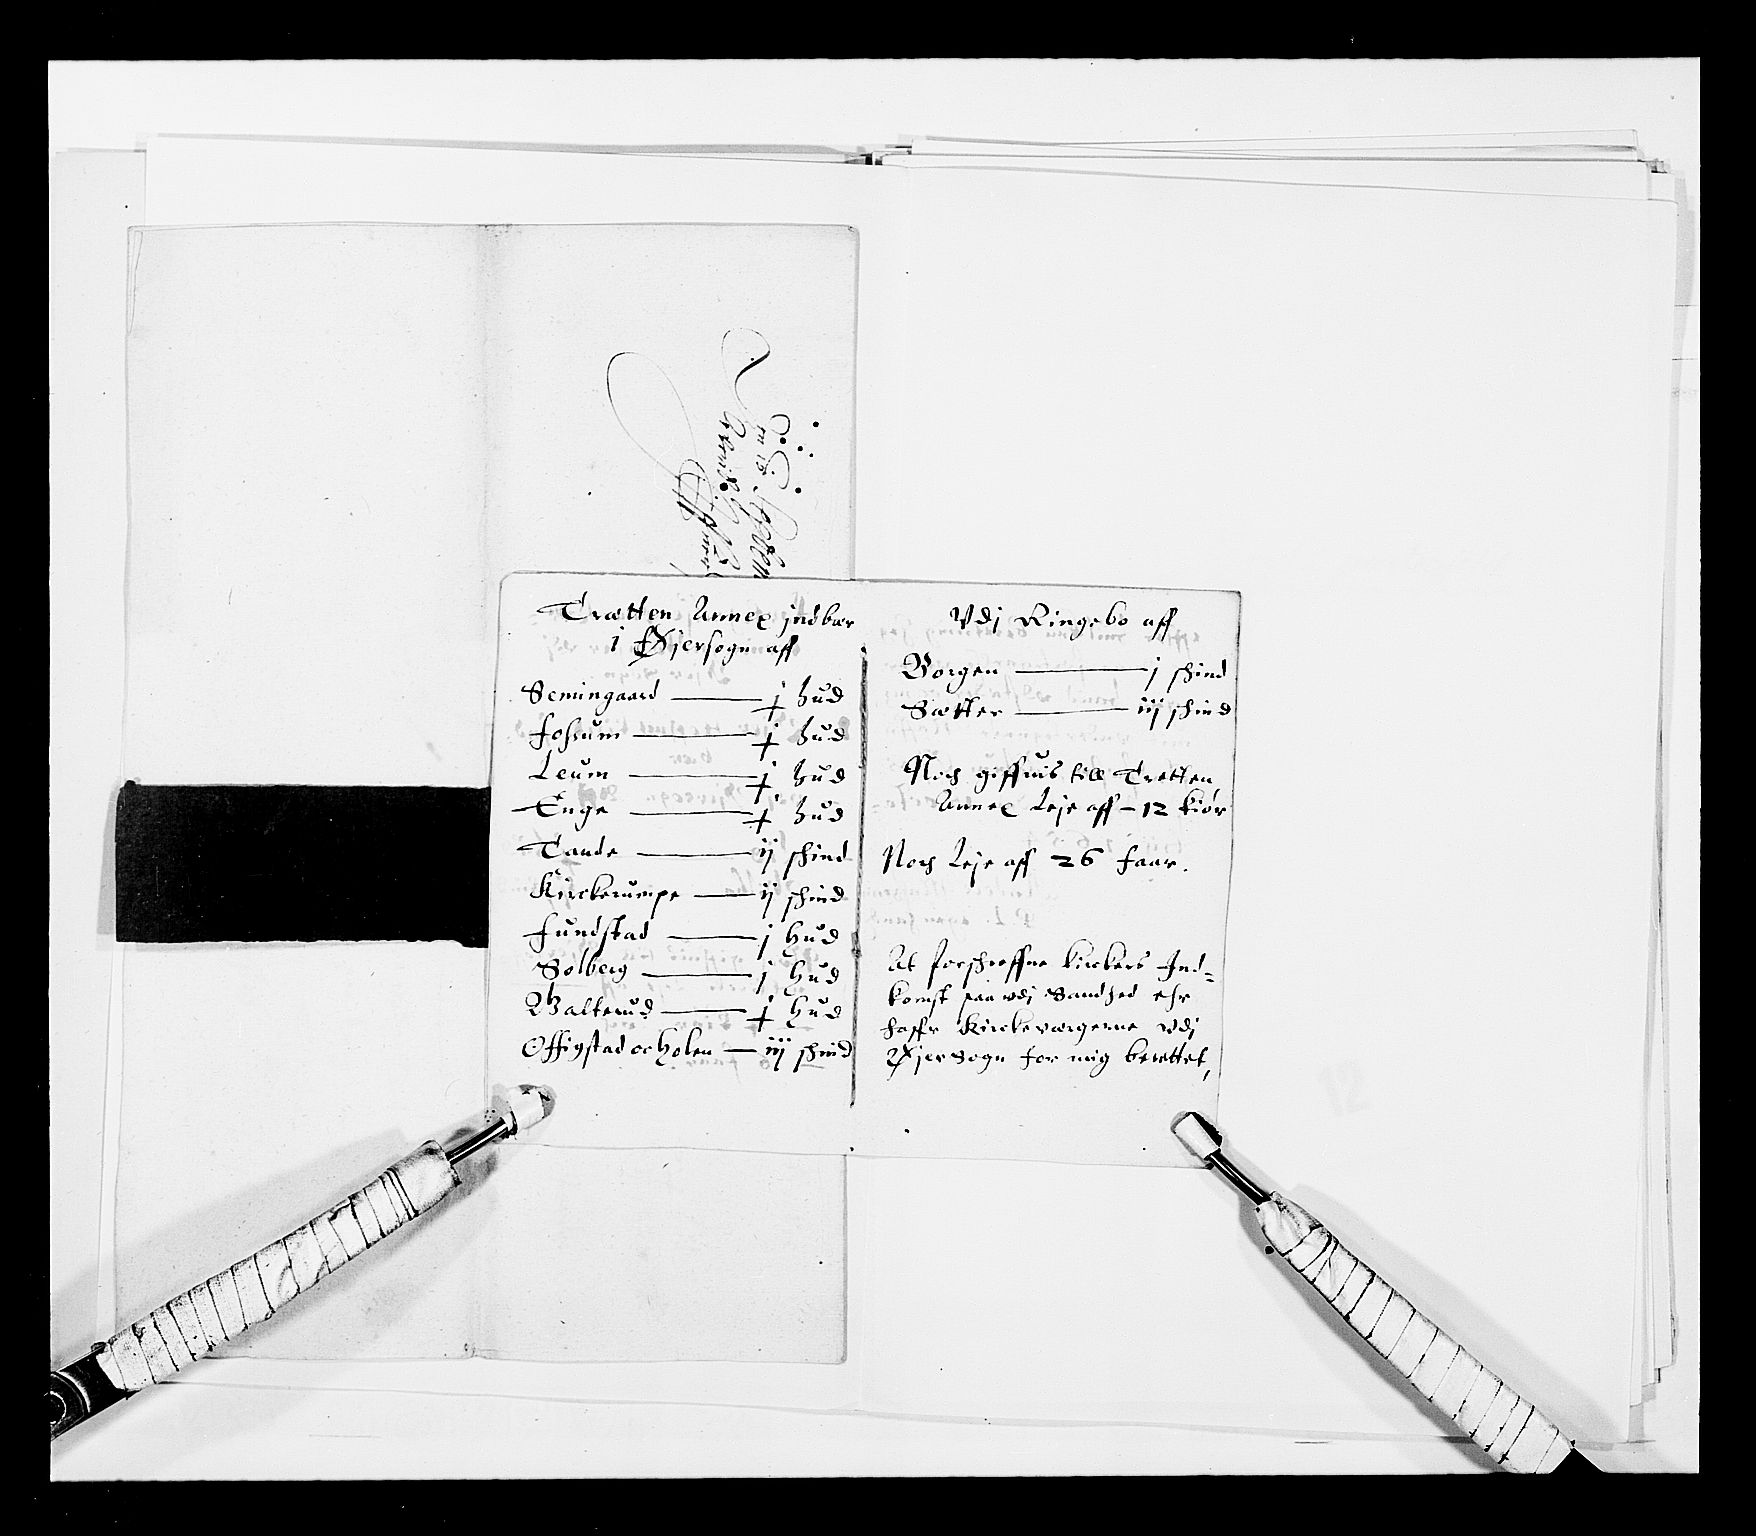 Trætten Annex jndbær
i Øjersogn aff
Semingaard — j hud
Fossum — j hud
Leum — j hud
Enge — j hud
Tande — ij skind
Kirckerumpe — ij skind
Fundstad — j Hud
Solberg — j Hud
Balterud — j Hud
Offigstad oc Holen — iij skind
Vdj Ringebo aff
Borgen — j skind
Sætter — iij skind
Noch giffuis till Tretten
Annex Leje aff – 12 kiør
Noch Leje aff 26 faar.
At forschreffne kirckers Ind=
komst saa vdj Sandhed ehr
haffr Kirckeværgerne vdj
Øjersogn for mig berettet,